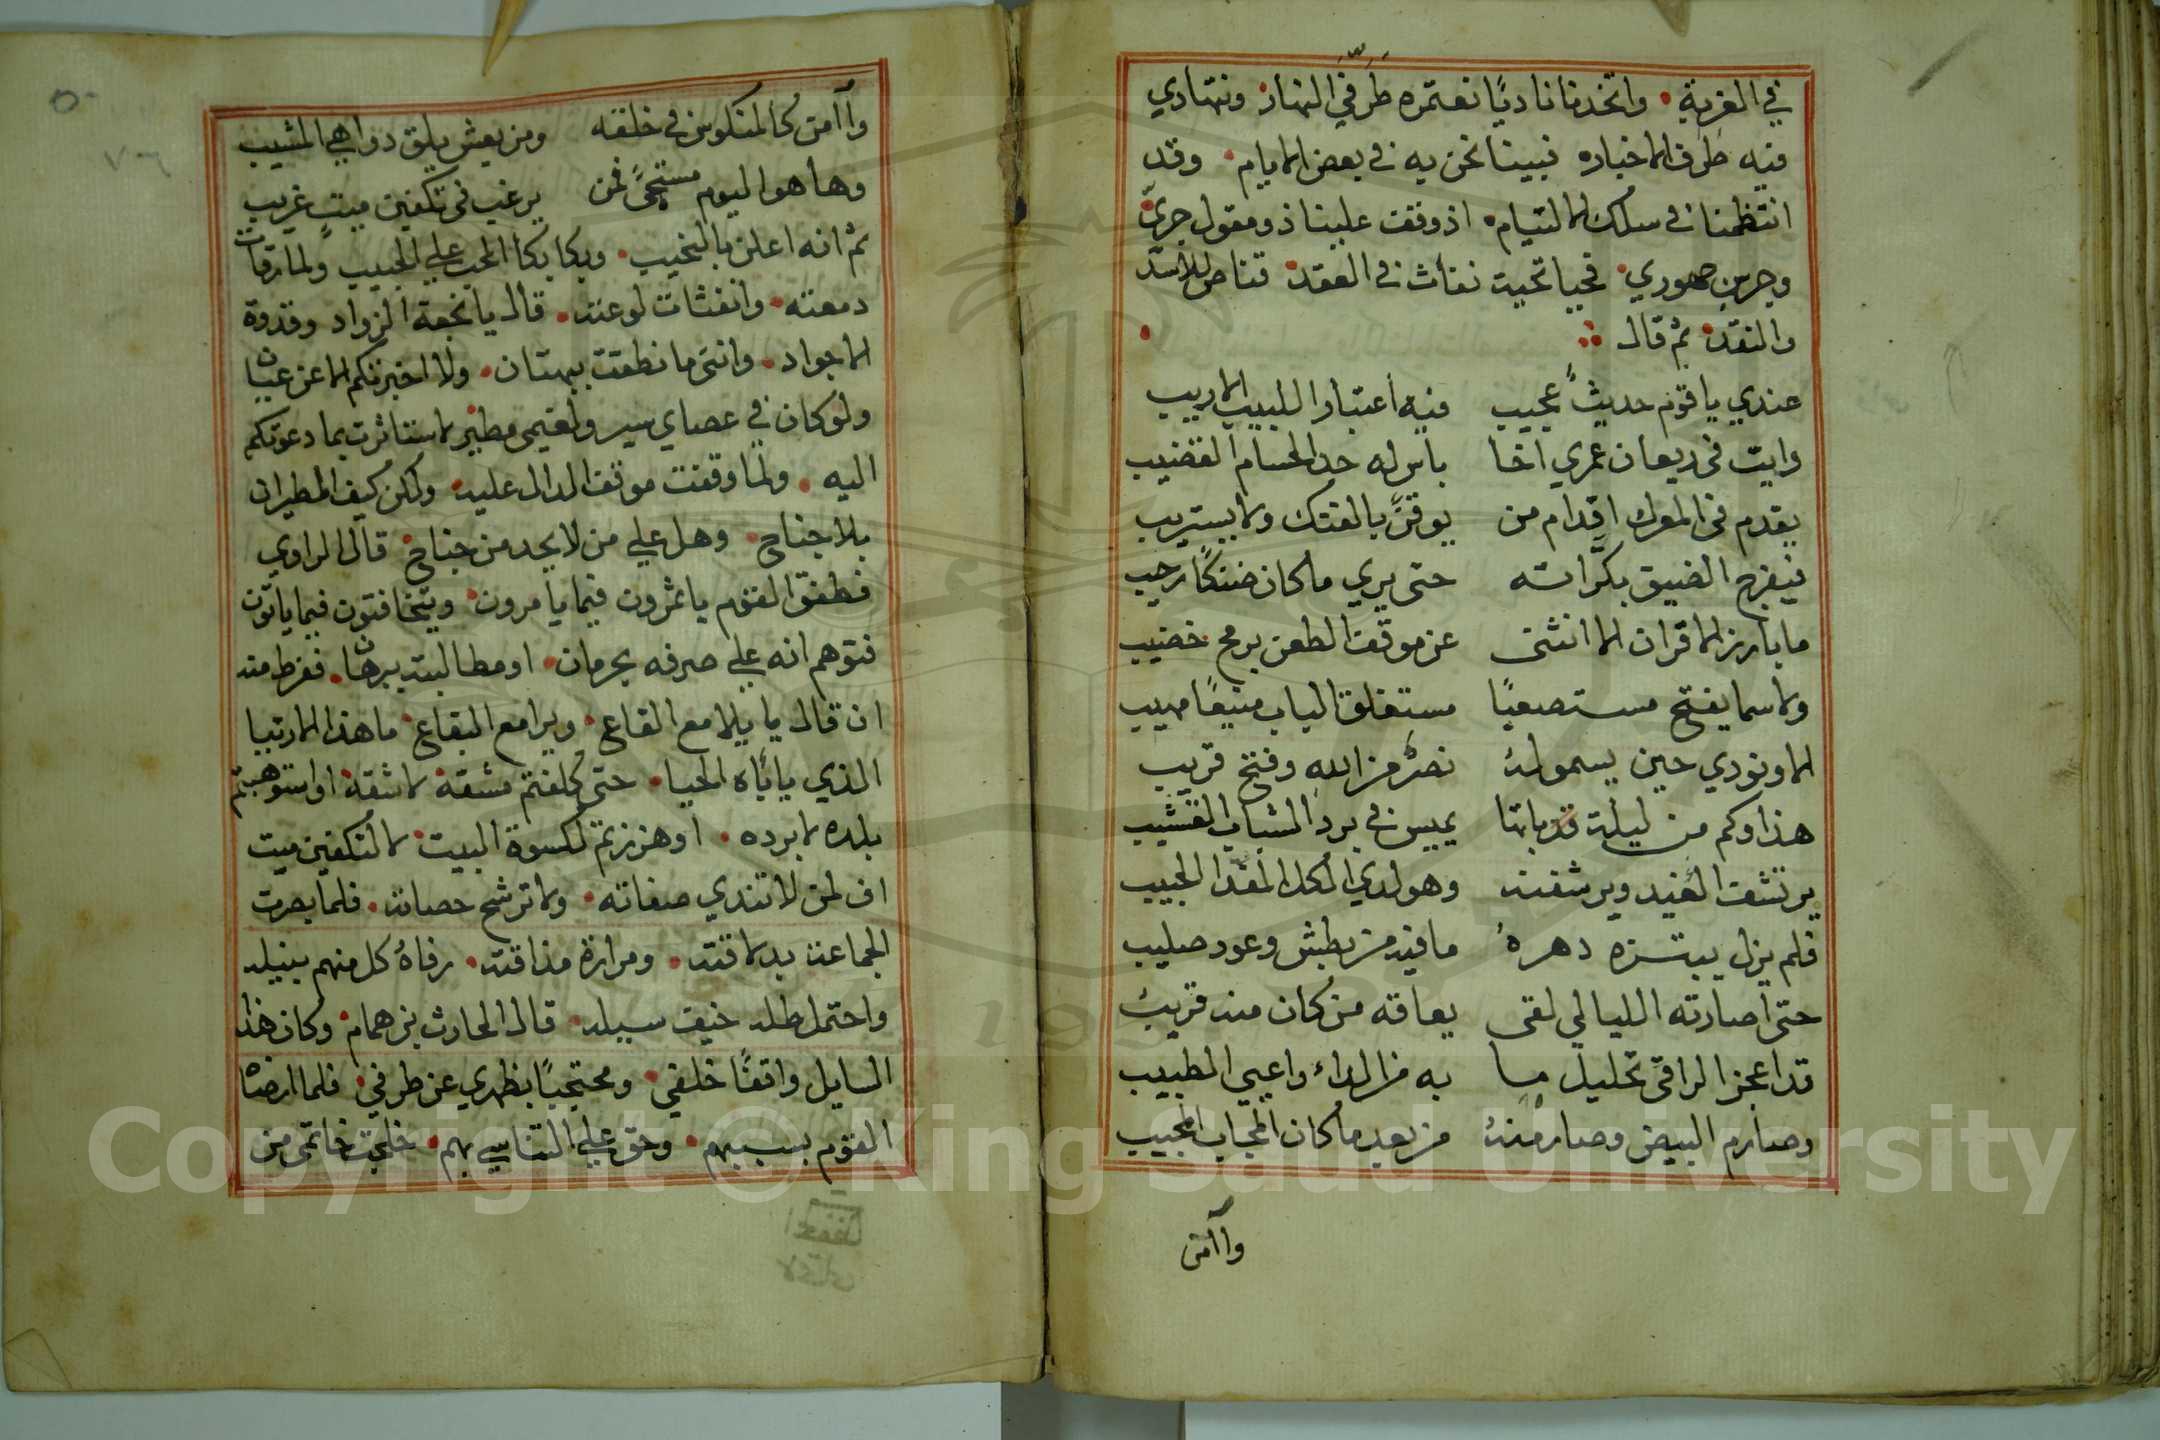 في الغربة • واتخدنا ناديًا نعتمره طَرَفَيِ النهار • ونتهادي
فيه طرف الاخباره فبينا نحن به في بعض الايام • وقد
انتظمنا في سلك الالتيام • اذ وقف علينا ذو مقول جريّ •
وجرس جهوري • فحيا تحية نفاث في العقد • قناص للاسد
والنقد • ثم قال
عندي يا قوم حديثٌ عجيب فيه اعتبار اللبيب الاريب
رايت في ريعان عمري اخا باس له حد الحسام القضيب
يقدم في المعرك اقدام من يوقن بالفتك ولا يستريب
فيفرج الضيق بكرَّاته حتي يري ما كان ضنكًا رحيب
ما بارز الاقران الا انثني عن موقف الطعن برمح خضيب
ولا سما يفتح مستصعبًا مستغلق الباب منيعًا مهيب
الا ونودي حين يسمو له نصرٌ من الله وفتح قريب
هذا وكم من ليلة قد باتها يميس في برد الشباب القشيب
يرتشف الغيد ويرشفنه وهو لدي الكل المفدا الحبيب
فلم يزل يبتزه دهرهُ ما فيه من بطش وعود صليب
حتي اصارته الليالي لقي يعافه من كان منه قريب
قد اعجز الراقي تحليل ما به من الداء واعيي الطبيب
وصارم البيض وصارمنهُ من بعد ما كان المجاب المجيب
وآآمن
وآآمن كالمنكوس في خلقه ومن يعش يلق دواهي المشيب
وها هو اليوم مسجًّي فمن يرغب في تكفين ميتٍ غريب
ثم انه اعلن بالنحيب • وبكا بكا المحب علي الحبيب ولما رقات
دمعته • وانفثات لوعته • قال يا نجعة الزواد وقدوة
الاجواد • وانني ما نطقت ببهتان • ولا اخبرتكم الا عن عيان
ولو كان في عصاي سير ولغيمي مطير لاستاثرت بما دعوتكم
اليه • ولما وقفت موقف الدال عليه • ولكن كيف الطيران
بلا جناح • وهل علي من لا يجد من جناح • قال الراوي
فطفق القوم ياتمرون فيما يامرون • ويتخافتون فيما ياتون
فتوهم انه علي صرفه بحرمان • او مطالبته ببرهان • ففرط منه
ان قال يا يلامع القاع • ويرامع البقاع • ما هذا الارتيا
الذي ياباه الحيا • حتي كلفتم مشقة لا شقة او استوهبتم
بلده لا برده • او هززتم لكسوة البيت • لا لتكفين ميت
اف لمن لا تندي صفاته • ولا ترشح حصاته • فلما بصرت
الجماعة بدلاقته • ومرارة مذاقته • رفاهُ كل منهم بنيله
واحتمل طله خيف سيله • قال الحارث بن همام • وكان هذا
السايل واقفًا خلفي • ومحتجبًا بظهري عن طرفي • فلما ارضاه
القوم بسيبهم • وحق علي التناسي بهم • خلجت خاتمي من
Copyright © King Saud University